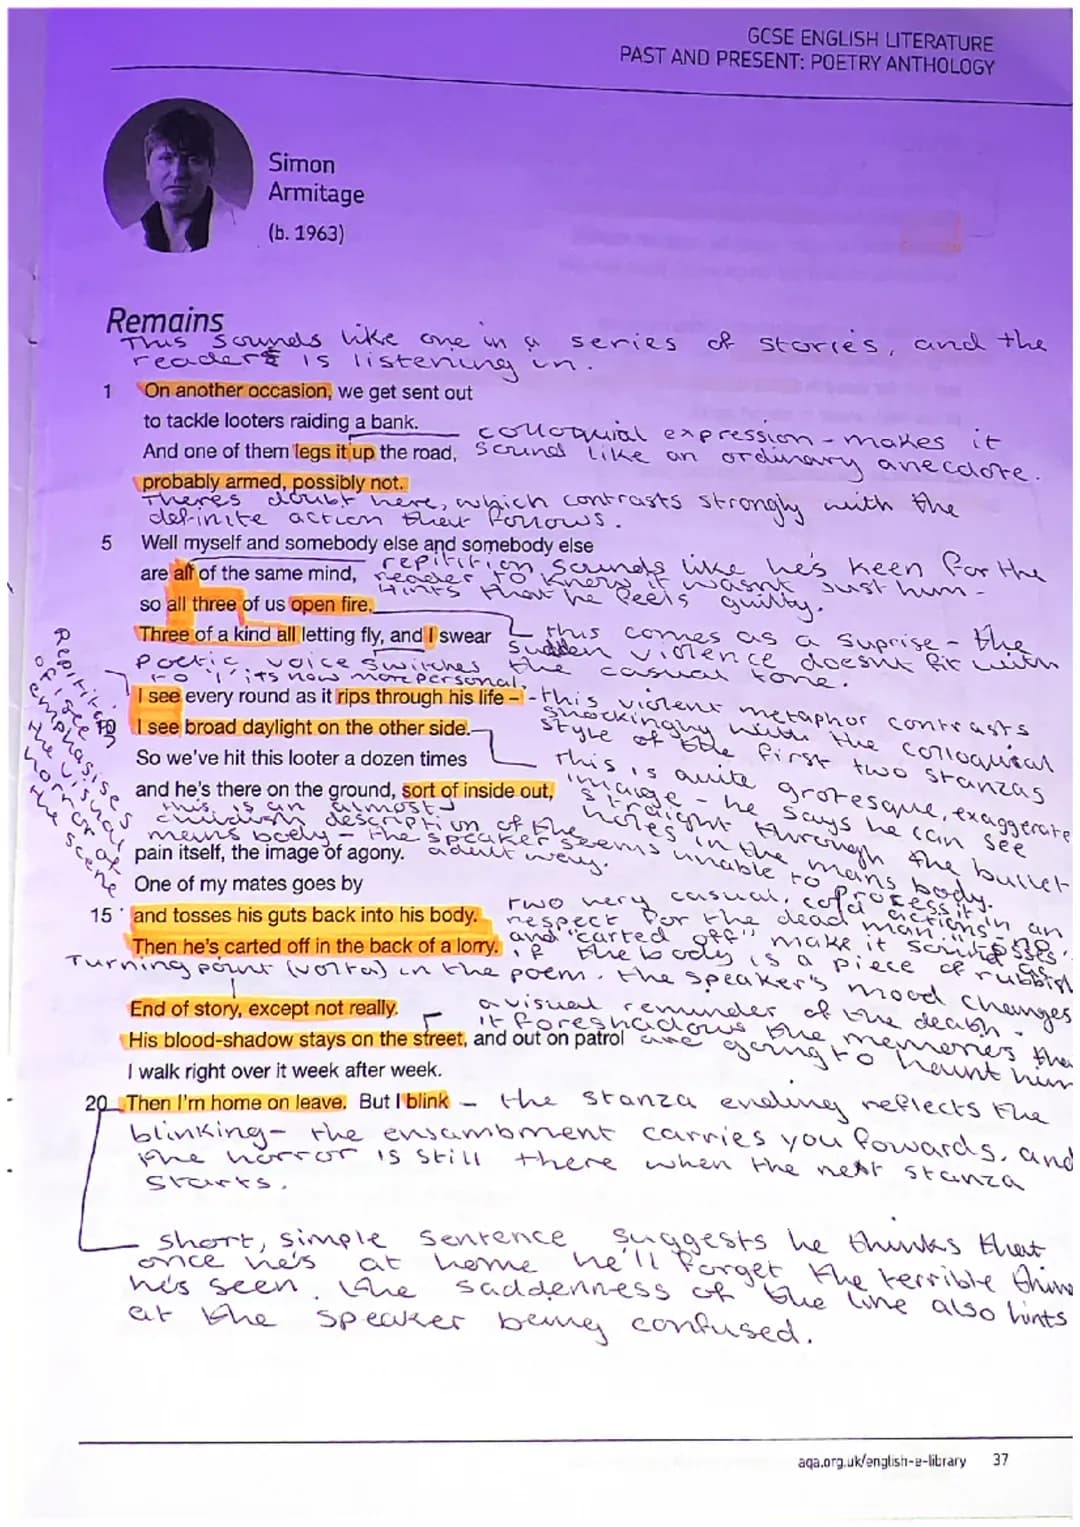 GCSE ENGLISH LITERATURE
PAST AND PRESENT: POETRY ANTHOLOGY
Simon
Armitage
(b. 1963)
Remains
This sounds like one in a series of stories, and the
reader is listening in.
1 On another occasion, we get sent out
to tackle looters raiding a bank.
And one of them legs it up the road,
colloquial expression - makes it
sound like an ordinary anecdote.
probably armed, possibly not.
Theres doubt here, which contrasts strongly with the
definite action that follows.
5 Well myself and somebody else and somebody else
are all of the same mind,
repitition sounds like he's keen for the
reader to know it wasnt just him -
Hints that he feels guilty.
so all three of us open fire.
Three of a kind all letting fly, and I swear
this comes as a suprise - the
sudden violence doesnt fit with
the casual tone.
Poetic voice switches
to 'I' its now more personal.
I see every round as it rips through his life –
- this violent metaphor contrasts
shockingly with the colloquial
style of the first two stanzas
Repitition
of 'I see'
emphasise
the visual
horror of
the scene
10 I see broad daylight on the other side.
So we've hit this looter a dozen times
this is quite grotesque, exaggerate
image - he says he can see
straight through the bullet
holes in the mans body.
and he's there on the ground, sort of inside out,
this is an almost
childish description of the
mans body - the speaker seems unable to process it in an
adult way.
pain itself, the image of agony.
One of my mates goes by
15 and tosses his guts back into his body.
Then he's carted off in the back of a lorry.
Two very casual, cold actions - no
respect for the dead man. "tosses"
and "carted off" make it sound as
if the body is a piece of rubbish
Turning point (volta) in the poem. the speaker's mood changes
End of story, except not really.
a visual reminder of the death.
it foreshadows the memories tha
are going to haunt him
His blood-shadow stays on the street, and out on patrol
I walk right over it week after week.
20 Then I'm home on leave. But I blink
- the stanza ending reflects the
blinking - the ensambment carries you fowards, and
the horror is still there when the next stanza
starts.
short, simple sentence suggests he thinks that
once he's at home he'll forget the terrible thin
he's seen. the saddenness of the line also hints
at the speaker being confused.
aqa.org.uk/english-e-library 37